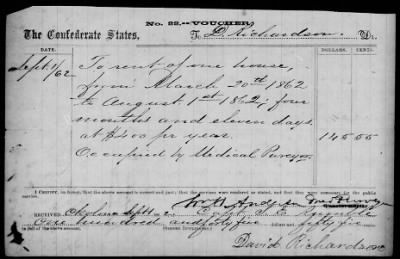 No. 22.—VOUCHER.
The Confederate States, To D Richardson. Dr.
DATE. DOLLARS. CENTS.
Sept 1/62 To rent of one house,
from March 20th 1862
to August 1st 1862; four
months and eleven days
at $400 per year. 145 55
Occupied by Medical Purveyor
I CERTIFY, on honor, that the above account is correct and just; that the services were rendered as stated, and that they were necessary for the public service.
W H Anderson Med Purveyor
RECEIVED Sept 1 2
One hundred and forty five
in full of the above account.
David Richardson